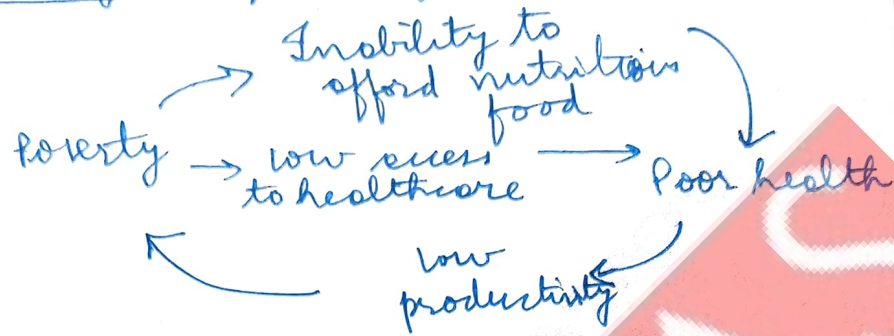 Inability to
afford nutritious
food
Poverty
low access
to healthcare
Poor health
low
productivity